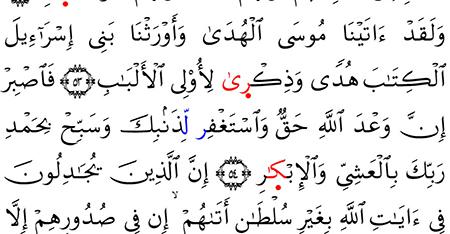 وَلَقَدۡ ءَاتَيۡنَا مُوسَى ٱلۡهُدَىٰ وَأَوۡرَثۡنَا بَنِي إِسۡرَٰٓءِيلَ
ٱلۡكِتَٰبَ هُدٗى وَذِكۡرىٰ لِأُوْلِي ٱلۡأَلۡبَٰبِ ٥٣ فَٱصۡبِرۡ
إِنَّ وَعۡدَ ٱللَّهِ حَقّٞ وَٱسۡتَغۡفِر لِّذَنۢبِكَ وَسَبِّحۡ بِحَمۡدِ
رَبِّكَ بِٱلۡعَشِيِّ وَٱلۡإِبۡكٰرِ ٥٤ إِنَّ ٱلَّذِينَ يُجَٰدِلُونَ
فِي ءَايَٰتِ ٱللَّهِ بِغَيۡرِ سُلۡطَٰنٍ أَتَىٰهُمۡ إِن فِي صُدُورِهِمۡ إِلَّا